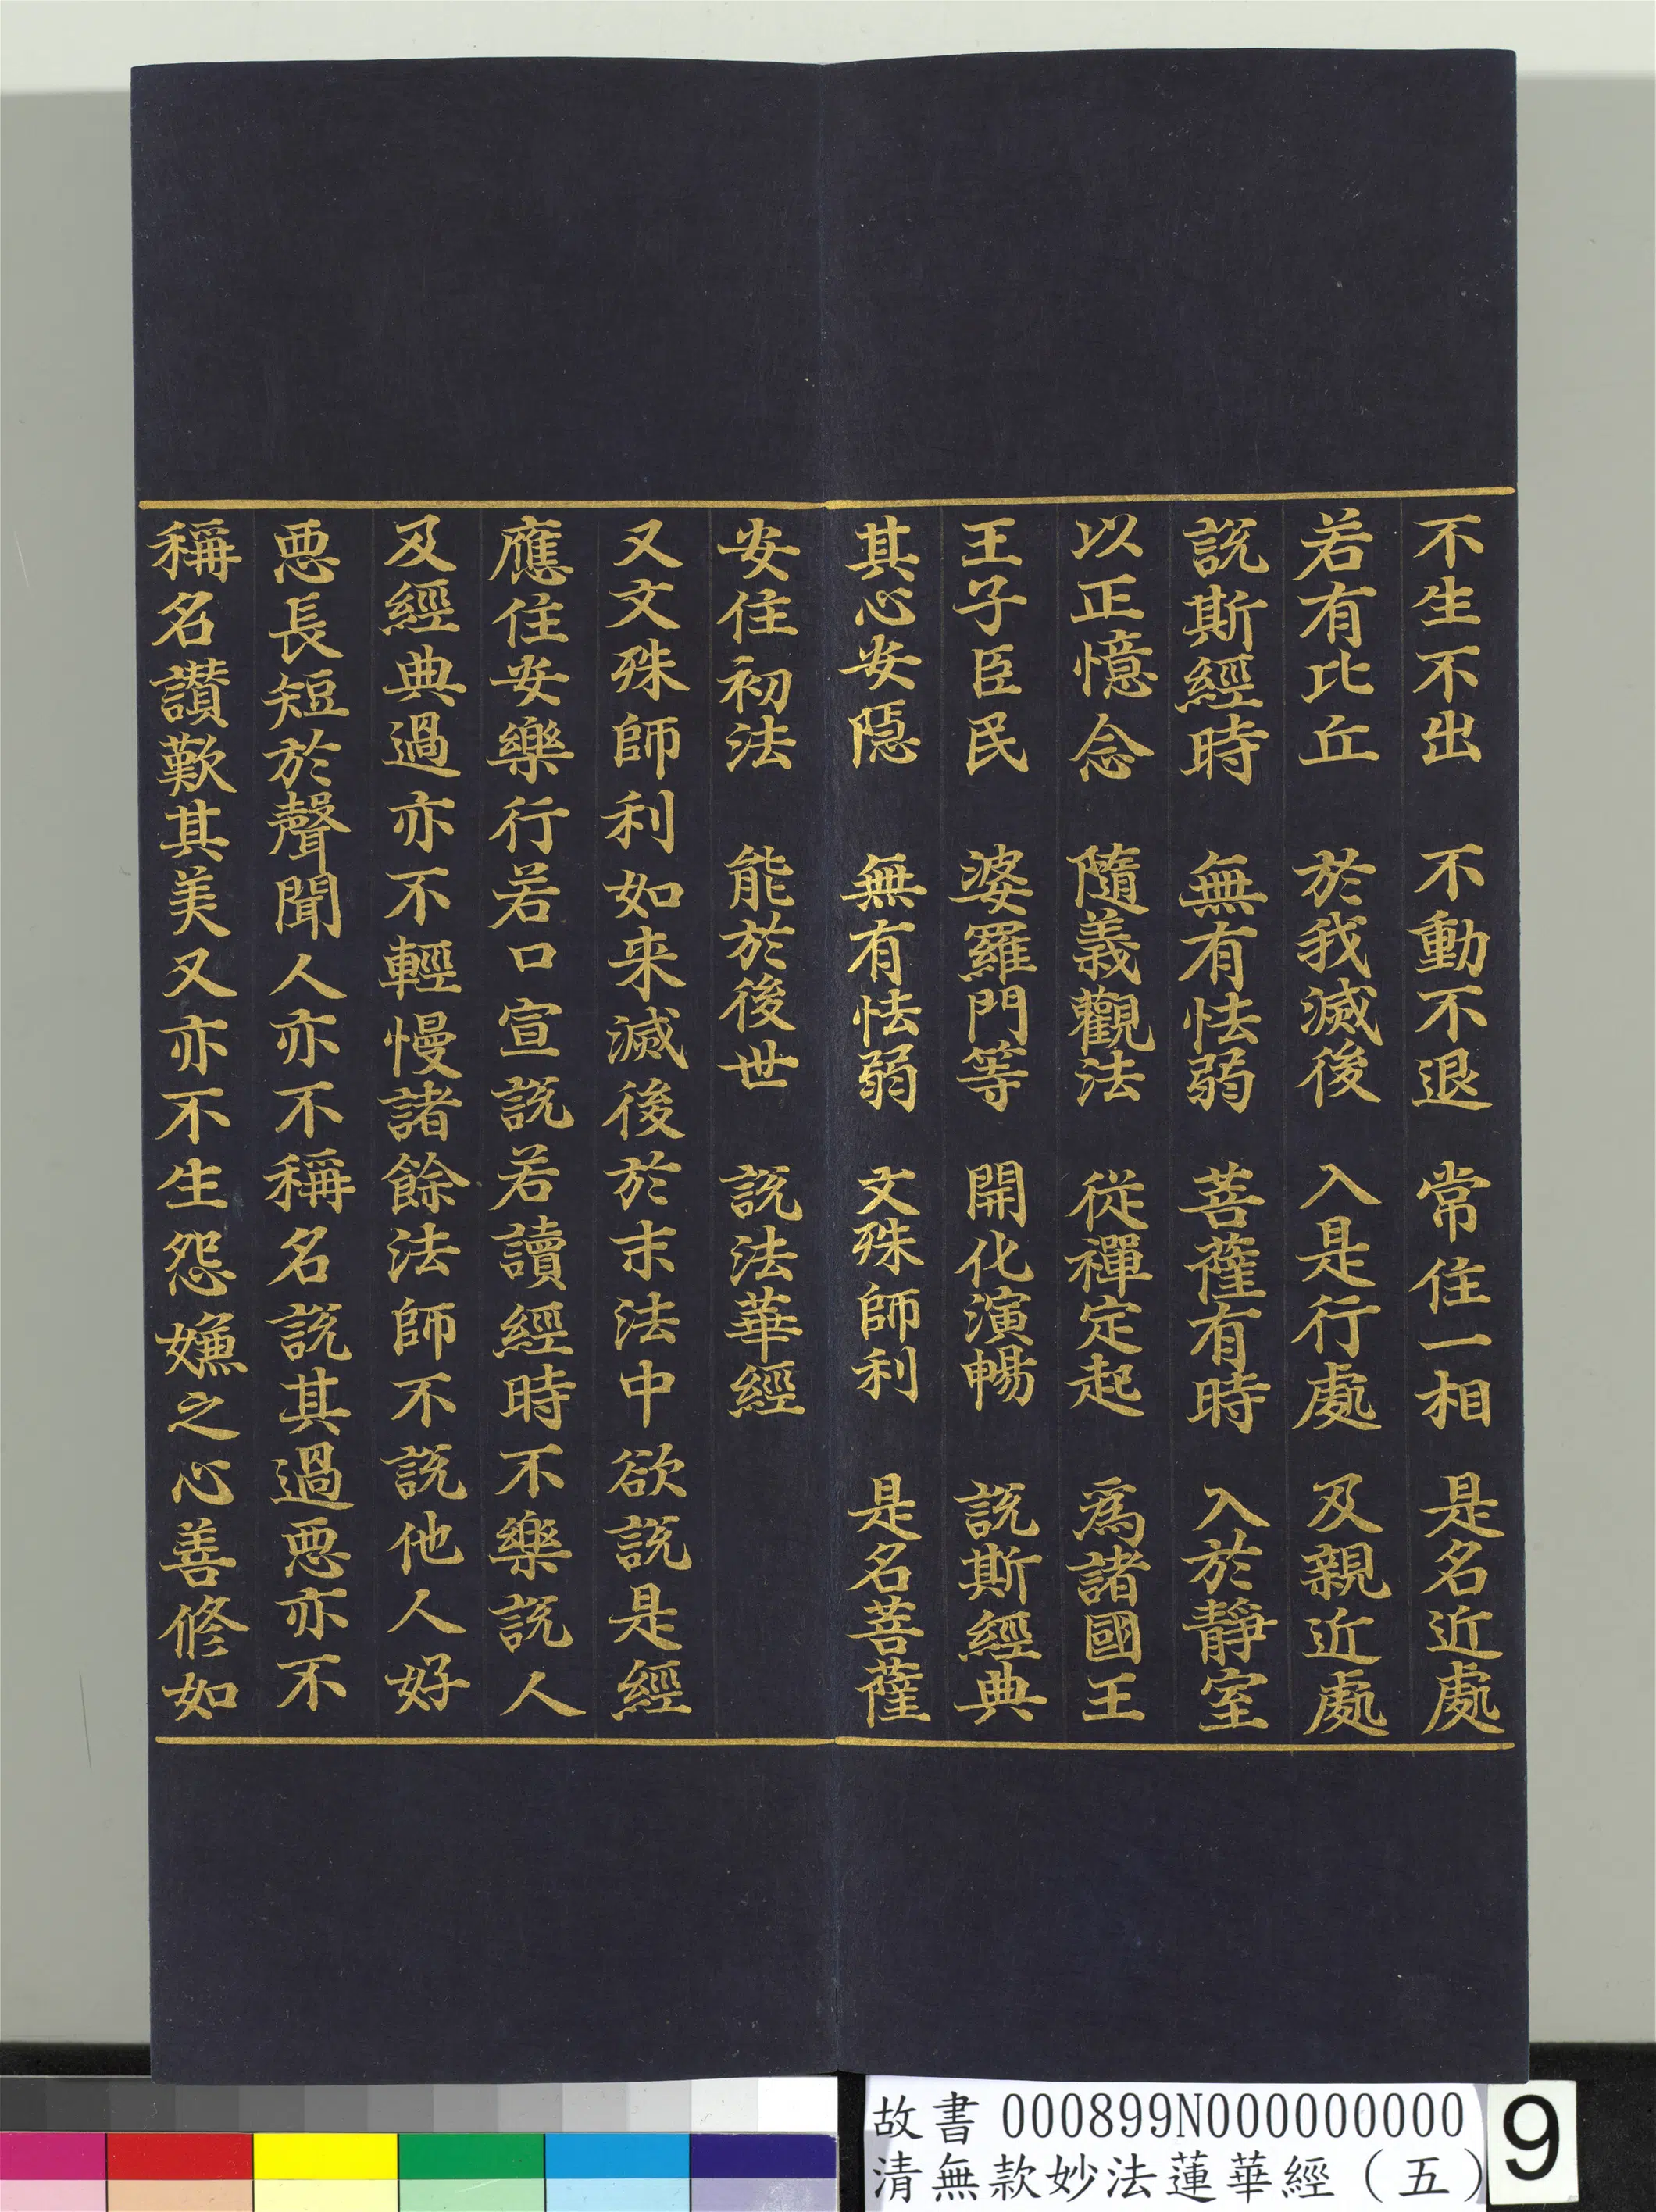 不生不出　不動不退　常住一相　是名近處
若有比丘　於我滅後　入是行處　及親近處
說斯經時　無有怯弱　菩薩有時　入於靜室
以正憶念　隨義觀法　從禪定起　爲諸國王
王子臣民　婆羅門等　開化演暢　說斯經典
其心安隱　無有怯弱　文殊師利　是名菩薩
安住初法　能於後世　說法華經
又文殊師利如来滅後於末法中欲說是經
應住安樂行若口宣說若讀經時不樂說人
及經典過亦不輕慢諸餘法師不說他人好
惡長短於聲聞人亦不稱名說其過惡亦不
稱名讃歎其美又亦不生怨嫌之心善修如
故書 000899N000000000
清無款妙法蓮華經（五）
9